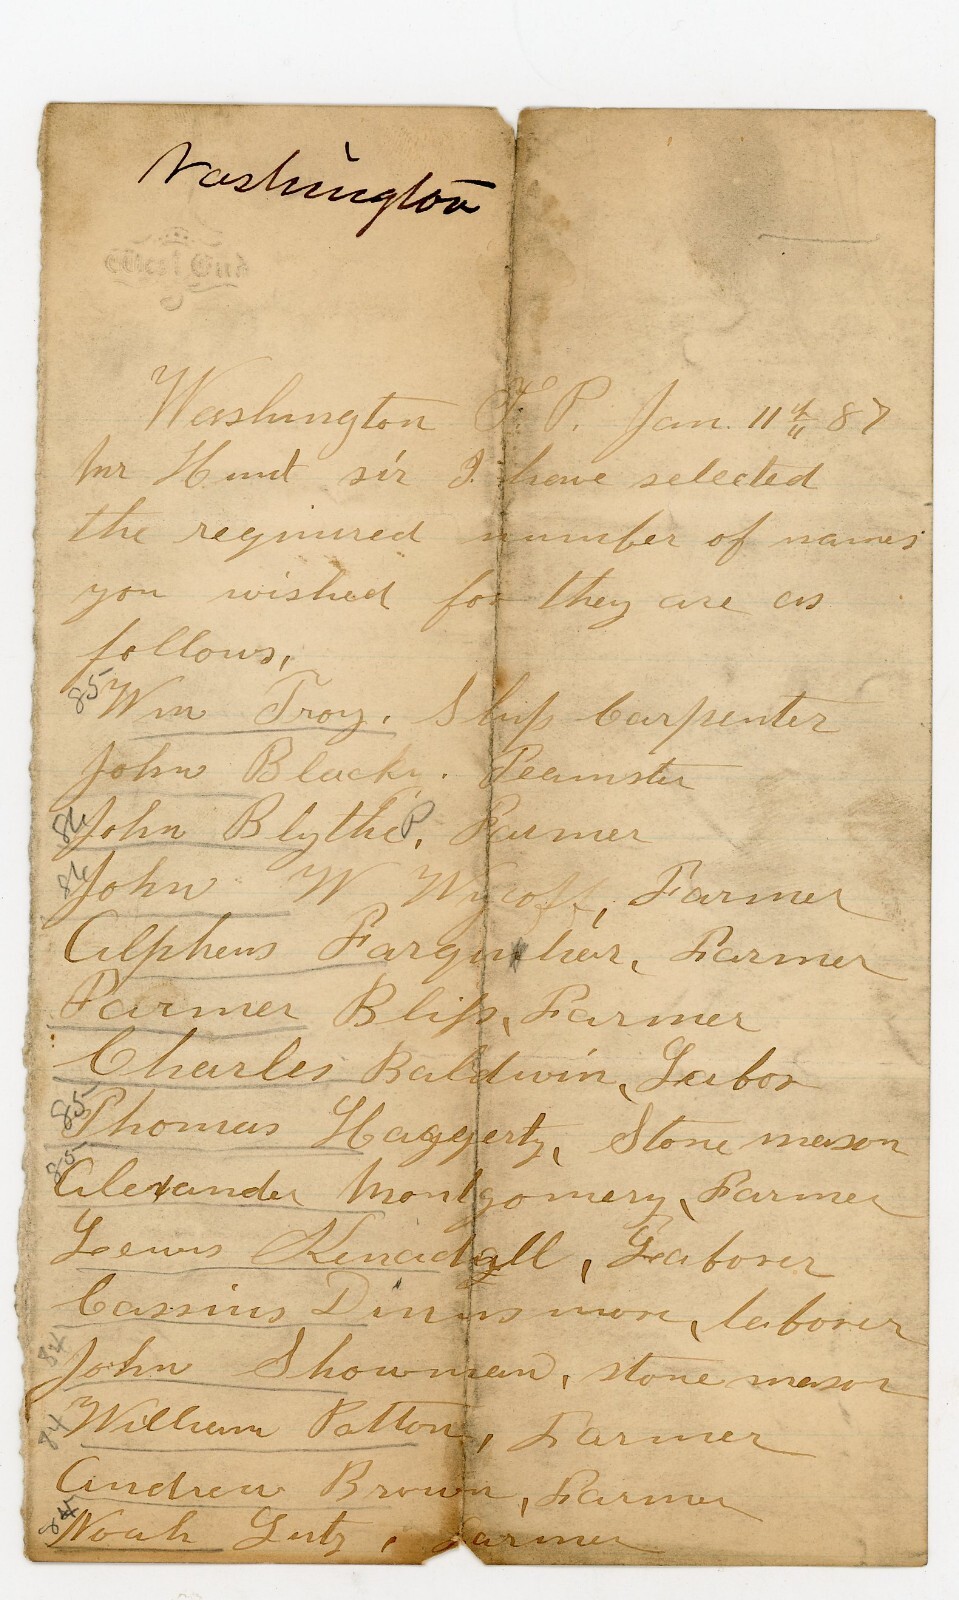 Washington
West End
Washington T.P. Jan. 11th 87
Mr Hunt sir I have selected
the reqiured number of names
you wished for they are as
follows,
85 Wm Troy. Ship Carpenter
John Blacky. Teamster
86 John Blythe. Farmer
86 John W Wycoff, Farmer
Alpheus Farquhar, Farmer
Farmer Bliss, Farmer
Charles Baldwin, Labor
85 Thomas Haggerty, Stone mason
85 Alexander Montgomery, Farmer
Lewis Kenadall, Laborer
Cassius Dinnsmore, laborer
84 John Showman, stone mason
84 William Patton, Farmer
Andrew Brown, Farmer
Noah Lutz, Farmer